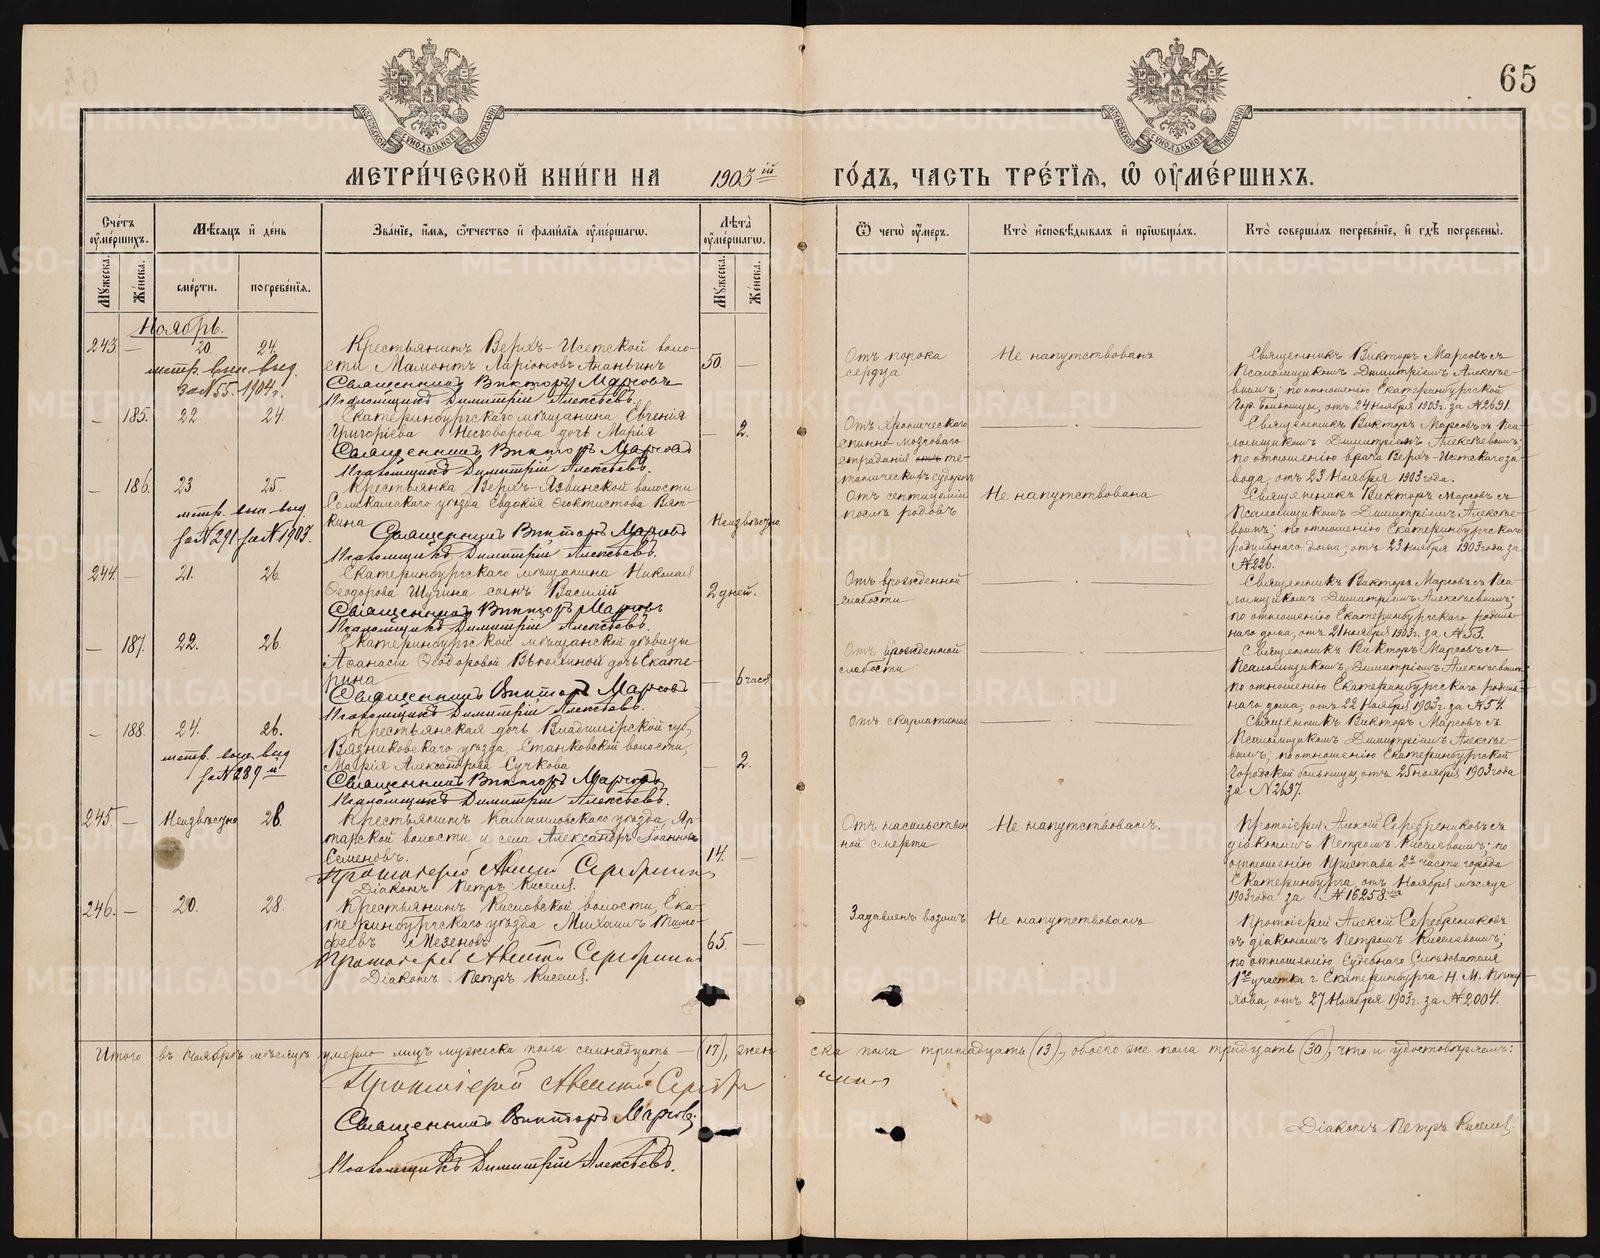 65
МЕТРИ́ЧЕСКОЙ КНИ́ГИ НА 1903 ій ГО́ДЪ, ЧАСТЬ ТРЕ́ТІѦ, Ѿ ОУМЕ́РШИХЪ.
Сче́тъ оуме́ршихъ.
Мѣ́сяцъ и де́нь
Зва́нїе, и́мя, о́тчество и фами́лїя оуме́ршагѡ.
Лѣ́та оуме́ршагѡ.
Ѿ чегѡ̀ оу́меръ.
Кто̀ и҆сповѣ́дывалъ и҆ прїѡбща́лъ.
Кто̀ соверша́лъ погребе́нїе, и҆ гдѣ̀ погребены̀.
Му́жеска.
Же́нска.
сме́рти.
погребе́нїя.
Му́жеска.
Же́нска.
Ноябрь.
243. — 20. 24.
метр. вып. выд.
за №55. 1904 г.
Крестьянинъ Верхъ-Исетской воло-
сти Мамонтъ Ларіоновъ Ананьинъ
Священникъ Викторъ Марсовъ
Псаломщикъ Димитрій Алексѣевъ.
50. —
Отъ порока
сердца
Не напутствованъ
Священникъ Викторъ Марсовъ съ
Псаломщикомъ Димитріемъ Алексѣе-
вымъ; по отношенію Екатеринбургской
Гор. больницы, отъ 24 ноября 1903 г. за №2691.
— 185. 22 24.
Екатеринбургскаго мѣщанина Евгенія
Григоріева Несговорова дочь Марія
Священникъ Викторъ Марсовъ
Псаломщикъ Димитрій Алексѣевъ.
— 2.
Отъ хроническаго
спинно-мозговаго
страданія отъ те-
таническихъ судорогъ
Священникъ Викторъ Марсовъ съ Пса-
ломщикомъ Димитріемъ Алексѣевымъ;
по отношенію врача Верхъ-Исетскаго за-
вода, отъ 23 Ноября 1903 года.
— 186. 23 25.
метр. вып. выд.
за №291 1903.
Крестьянка Верхъ-Язвинской волости
Соликамскаго уѣзда Евдокія Ѳеоктистова Вят-
кина
Священникъ Викторъ Марсовъ
Псаломщикъ Димитрій Алексѣевъ.
Неизвѣстно
Отъ септицеміи
послѣ родовъ
Не напутствована
Священникъ Викторъ Марсовъ съ
Псаломщикомъ Димитріемъ Алексѣе-
вымъ; по отношенію Екатеринбургскаго
родильнаго дома, отъ 23 ноября 1903 года за
№226.
244. — 21. 26.
Екатеринбургскаго мѣщанина Николая
Ѳеодорова Щукина сынъ Василій
Священникъ Викторъ Марсовъ
Псаломщикъ Димитрій Алексѣевъ.
2 дней.
Отъ врожденной
слабости
Священникъ Викторъ Марсовъ съ Пса-
ломщикомъ Димитріемъ Алексѣевымъ;
по отношенію Екатеринбургскаго родиль-
наго дома, отъ 21 ноября 1903 г. за №53.
— 187. 22. 26.
Екатеринбургской мѣщанской дѣвицы
Аѳанасіи Ѳеодоровой дочь Екате-
рина
Священникъ Викторъ Марсовъ
Псаломщикъ Димитрій Алексѣевъ.
— 6 часъ
Отъ врожденной
слабости
Священникъ Викторъ Марсовъ съ
Псаломщикомъ Димитріемъ Алексѣевымъ
по отношенію Екатеринбургскаго родиль-
наго дома, отъ 22 Ноября 1903 г. за №54.
— 188. 24. 26.
метр. вып. выд
за №289 й
Крестьянская дочь Владимірской губ,
Вязниковскаго уѣзда, Станковской волости,
Марія Александрова Сучкова
Священникъ Викторъ Марсовъ
Псаломщикъ Димитрій Алексѣевъ.
— 2.
Отъ скарлатины
Священникъ Викторъ Марсовъ съ
Псаломщикомъ Димитріемъ Алексѣе-
вымъ; по отношенію Екатеринбургской
Городской больницы, отъ 25 ноября 1903 года
за №2697.
245. — Неизвѣстно 28.
Крестьянинъ Камышловскаго уѣзда, Яр-
тарской волости и села Александръ Іоанновъ
Семеновъ.
Протоіерей Алексій Серебрениковъ
Діаконъ Петръ Киселевъ.
14. —
Отъ насильствен
ной смерти
Не напутствованъ.
Протоіерей Алексій Серебрениковъ съ
діакономъ Петромъ Киселевымъ; по
отношенію Пристава 2й части города
Екатеринбурга, отъ Ноября мѣсяца
1903 года за №16258
246. — 20. 28.
Крестьянинъ Кисловской волости, Ека-
теринбургскаго уѣзда Михаилъ Тимо-
феевъ Мезеновъ
Протоіерей Алексій Серебрениковъ
Діаконъ Петръ Киселевъ.
65. —
Задавленъ возомъ
Не напутствованъ
Протоіерей Алексій Серебрениковъ
съ діакономъ Петромъ Киселевымъ;
по отношенію Судебнаго Слѣдователя
1го участка г. Екатеринбурга Н. М.
отъ 27 Ноября 1903 г. за №2004.
Итого въ ноябрѣ мѣсяцѣ умерло лицъ мужеска пола семнадцать — (17), жен ска пола тринадцать (13), обоего же пола тридцать (30), что и удостовѣряемъ:
Протоіерей Алексій Серебре
никовъ
Священникъ Викторъ Марсовъ.
Діаконъ Петръ Киселевъ.
Псаломщикъ Димитрій Алексѣевъ.
METRIKI.GASO-URAL.RU